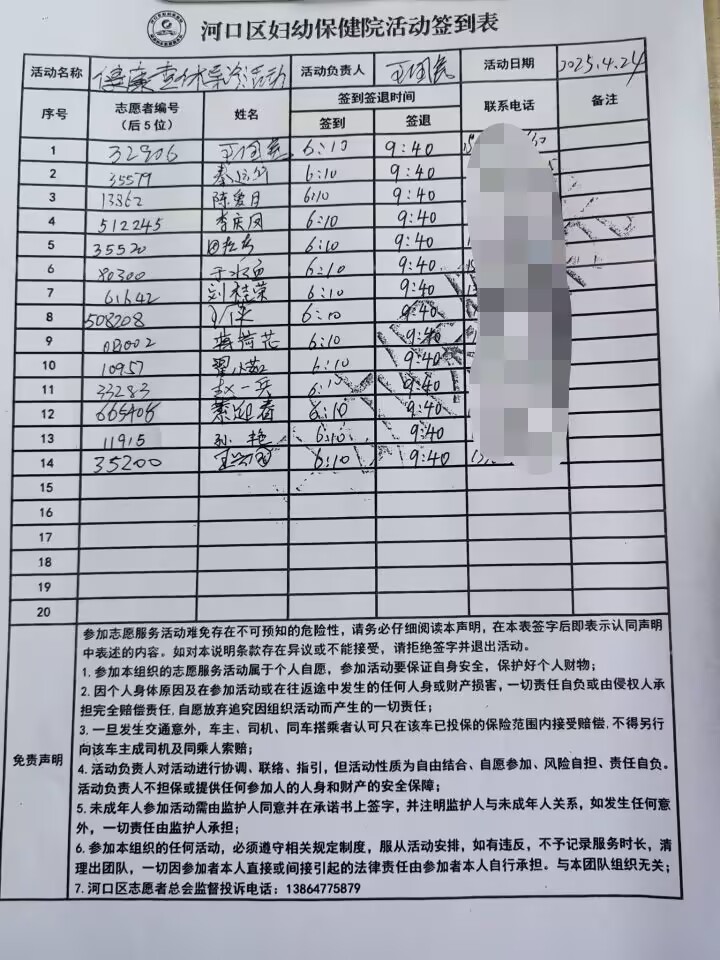 河口区妇幼保健院活动签到表
活动名称 健康查体导诊活动 活动负责人 王国民 活动日期 2025.4.24
序号 志愿者编号（后5位） 姓名 签到签退时间 联系电话 备注
签到 签退
1 32906 6:10 9:40
2 35579 6:10 9:40
3 13362 陈爱月 6:10 9:40
4 512245 李庆凤 6:10 9:40
5 35520 6:10 9:40
6 80300 6:10 9:40
7 61642 刘桂荣 6:10 9:40
8 508208 6:10 9:40
9 6:10 9:40
10 10957 6:10 9:40
11 33283 赵一兵 6:15 9:40
12 665406 6:10 9:40
13 11915 孙艳 6:10 9:40
14 35200 6:10 9:40
15
16
17
18
19
20
免责声明
参加志愿服务活动难免存在不可预知的危险性，请务必仔细阅读本声明，在本表签字后即表示认同声明
中表述的内容。如对本说明条款存在异议或不能接受，请拒绝签字并退出活动。
1. 参加本组织的志愿服务活动属于个人自愿，参加活动要保证自身安全，保护好个人财物；
2. 因个人身体原因及在参加活动或在往返途中发生的任何人身或财产损害，一切责任自负或由侵权人承
担完全赔偿责任，自愿放弃追究因组织活动而产生的一切责任；
3. 一旦发生交通意外，车主、司机、同车搭乘者认可只在该车已投保的保险范围内接受赔偿，不得另行
向该车主成司机及同乘人索赔；
4. 活动负责人对活动进行协调、联络、指引，但活动性质为自由结合、自愿参加、风险自担、责任自负。
活动负责人不担保或提供任何参加人的人身和财产的安全保障；
5. 未成年人参加活动需由监护人同意并在承诺书上签字，并注明监护人与未成年人关系，如发生任何意
外，一切责任由监护人承担；
6. 参加本组织的任何活动，必须遵守相关规定制度，服从活动安排，如有违反，不予记录服务时长，清
理出团队，一切因参加者本人直接或间接引起的法律责任由参加者本人自行承担。与本团队组织无关；
7. 河口区志愿者总会监督投诉电话：13864775879